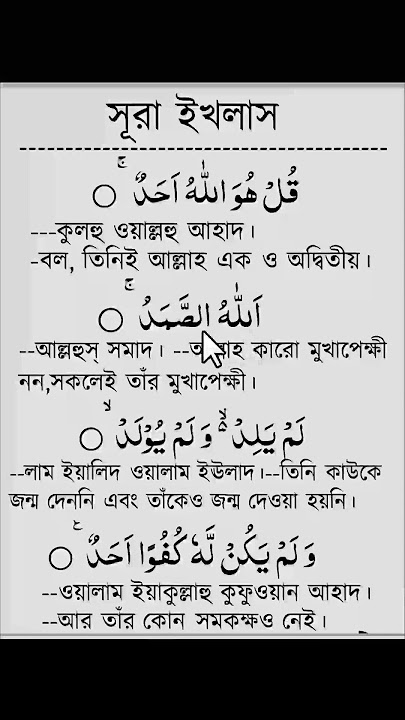 সূরা ইখলাস
قُلْ هُوَ اللّٰهُ اَحَدٌ ۚ ○
---কুলহু ওয়াল্লহু আহাদ।
-বল, তিনিই আল্লাহ এক ও অদ্বিতীয়।
اَللّٰهُ الصَّمَدُ ۚ ○
--আল্লহুস্ সমাদ। --আল্লাহ কারো মুখাপেক্ষী
নন,সকলেই তাঁর মুখাপেক্ষী।
لَمْ يَلِدْ ۙ۬ وَلَمْ يُوْلَدْ ۙ ○
--লাম ইয়ালিদ ওয়ালাম ইউলাদ।--তিনি কাউকে
জন্ম দেননি এবং তাঁকেও জন্ম দেওয়া হয়নি।
وَلَمْ يَكُنْ لَّهٗ كُفُوًا اَحَدٌ ۧ ○
--ওয়ালাম ইয়াকুল্লাহু কুফুওয়ান আহাদ।
--আর তাঁর কোন সমকক্ষও নেই।